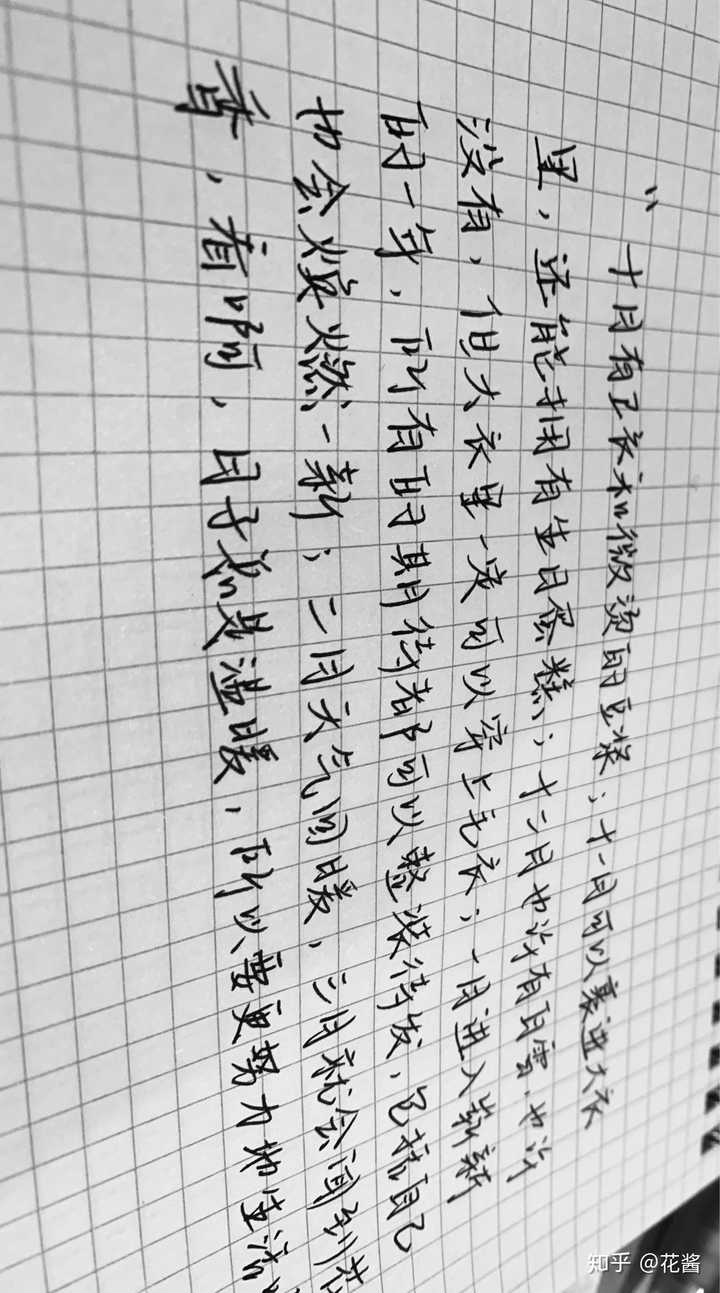 “十月有卫衣和微烫的豆浆；十一月可以裹进大衣
里，还能拥有生日蛋糕；十二月也许有白雪，也许
没有，但大衣里一定可以穿上毛衣；一月进入崭新
的一年，所有的期待都可以整装待发，包括自己
也会焕然一新；二月天气回暖，三月就会闻到花
香，看啊，日子总是温暖，所以要更努力地生活
知乎 @花酱